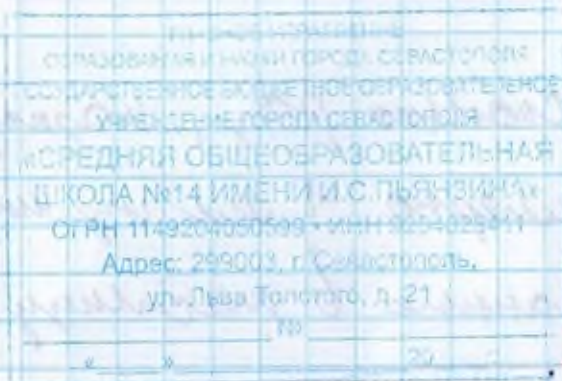 ОБРАЗОВАНИЯ И НАУКИ ГОРОДА СЕВАСТОПОЛЯ
ГОСУДАРСТВЕННОЕ БЮДЖЕТНОЕ ОБРАЗОВАТЕЛЬНОЕ
УЧРЕЖДЕНИЕ ГОРОДА СЕВАСТОПОЛЯ
«СРЕДНЯЯ ОБЩЕОБРАЗОВАТЕЛЬНАЯ
ШКОЛА №14 ИМЕНИ И.С.ПЬЯНЗИНА»
ОГРН 1149204050599 • ИНН
Адрес: 299003, г. Севастополь,
ул. Льва Толстого, д. 21
№
« » 20